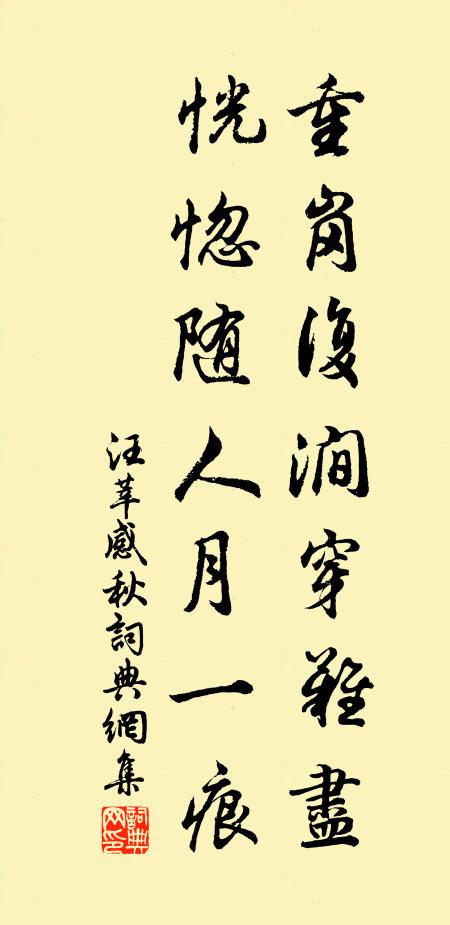 重岗復澗穿難盡
恍惚随人月一痕
汪莘感秋詞典網集
詞典網印